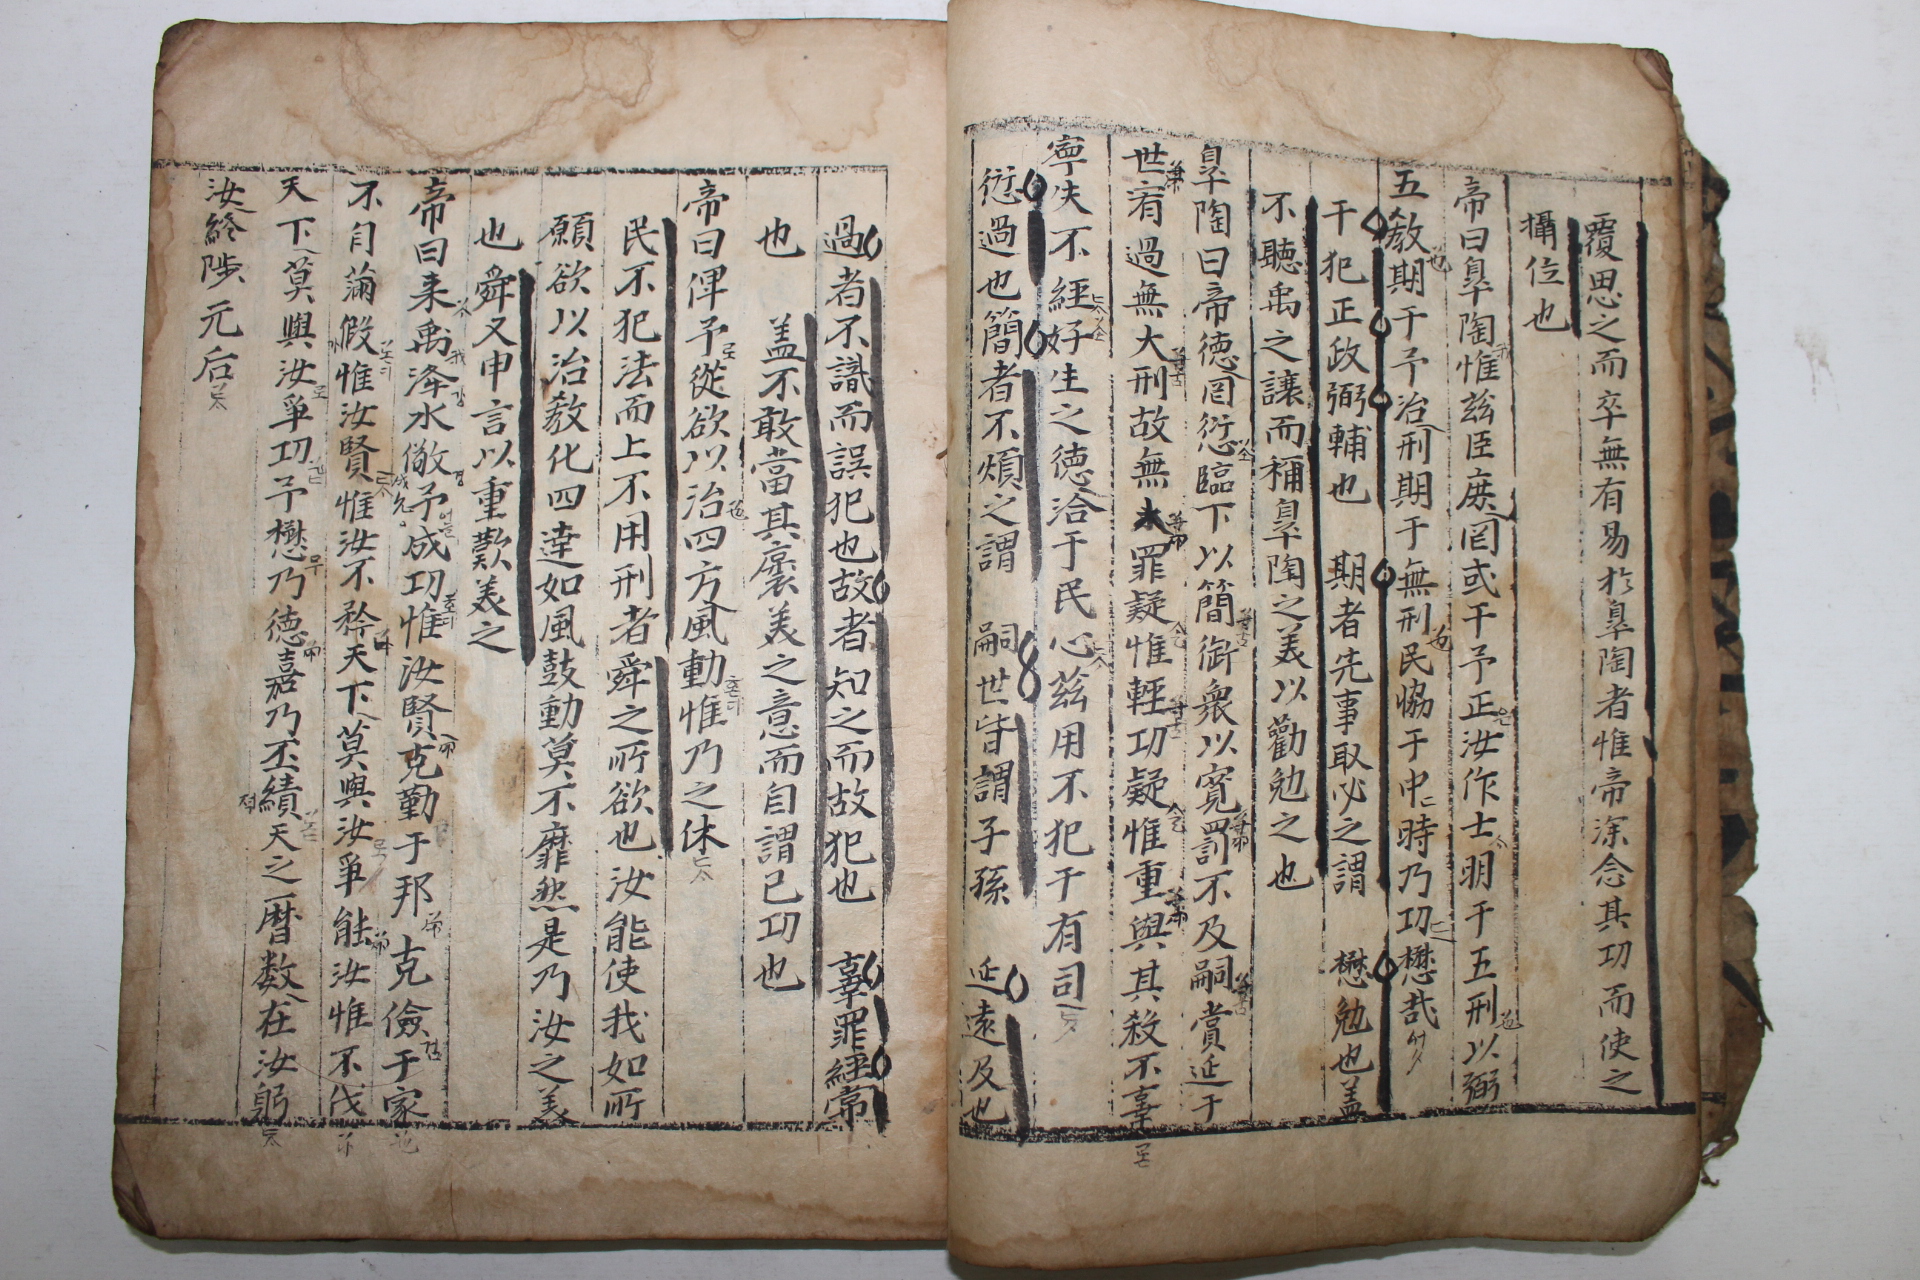 覆思之而卒無有易於皐陶者惟帝深念其功而使之
攝位也
帝曰皐陶惟兹臣庶罔或干予正汝作士明于五刑以弼
五教期于予治刑期于無刑民恊于中時乃功懋哉
干犯正政弼輔也 期者先事取必之謂 懋勉也盖
不聽禹之讓而稱皐陶之美以勸勉之也
皐陶曰帝德罔愆臨下以簡御衆以寛罰不及嗣賞延于
世宥過無大刑故無小罪疑惟輕功疑惟重與其殺不辜
寧失不經好生之德洽于民心兹用不犯于有司
愆過也簡者不煩之謂 嗣世皆謂子孫 延遠及也
過者不識而誤犯也故者知之而故犯也 辜罪經常
也 盖不敢當其褒美之意而自謂己功也
帝曰俾予從欲以治四方風動惟乃之休
民不犯法而上不用刑者舜之所欲也汝能使我如所
願欲以治教化四達如風鼓動莫不靡然是乃汝之美
也舜又申言以重歎美之
帝曰来禹洚水儆予成功惟汝賢克勤于邦克儉于家
不自滿假惟汝賢惟汝不矜天下莫與汝爭能汝惟不伐
天下莫與汝爭功予懋乃德嘉乃丕績天之曆数在汝躬
汝終陟元后